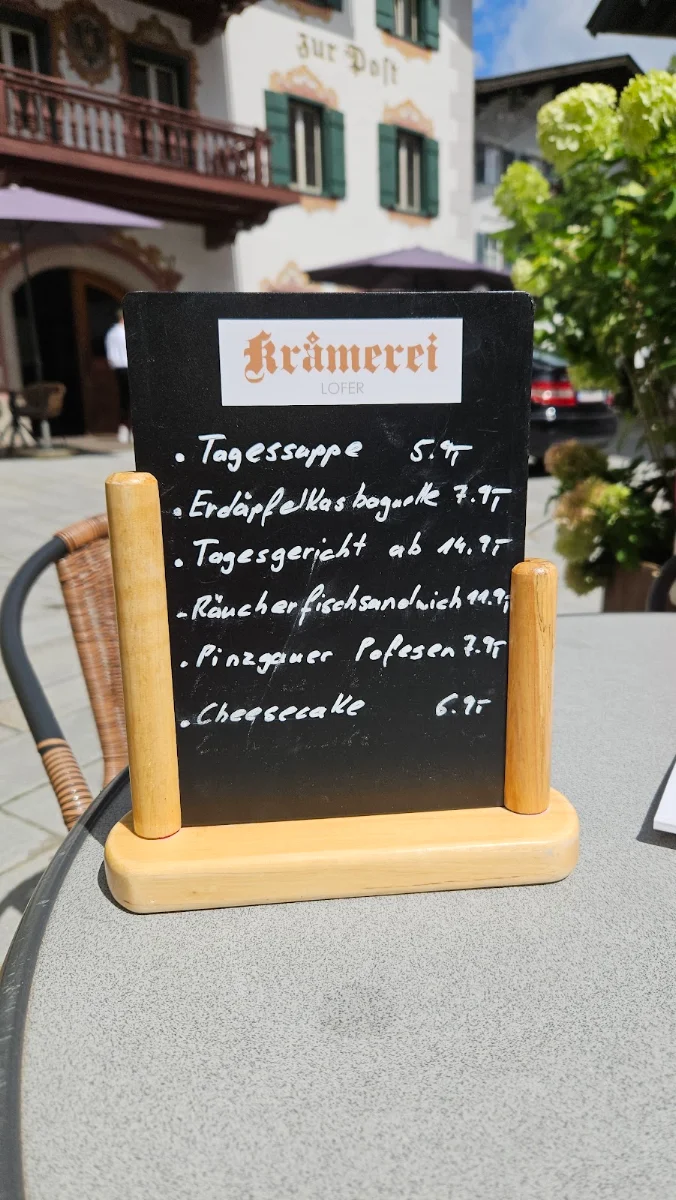 zur Post
Kråmerei
LOFER
. Tagessuppe 5.9,-
. Erdäpfelkasbaguette 7.9,-
. Tagesgericht ab 14.9,-
- Räucherfischsandwich 11.9,-
. Pinzgauer Pofesen 7.9,-
. Cheesecake 6.9,-